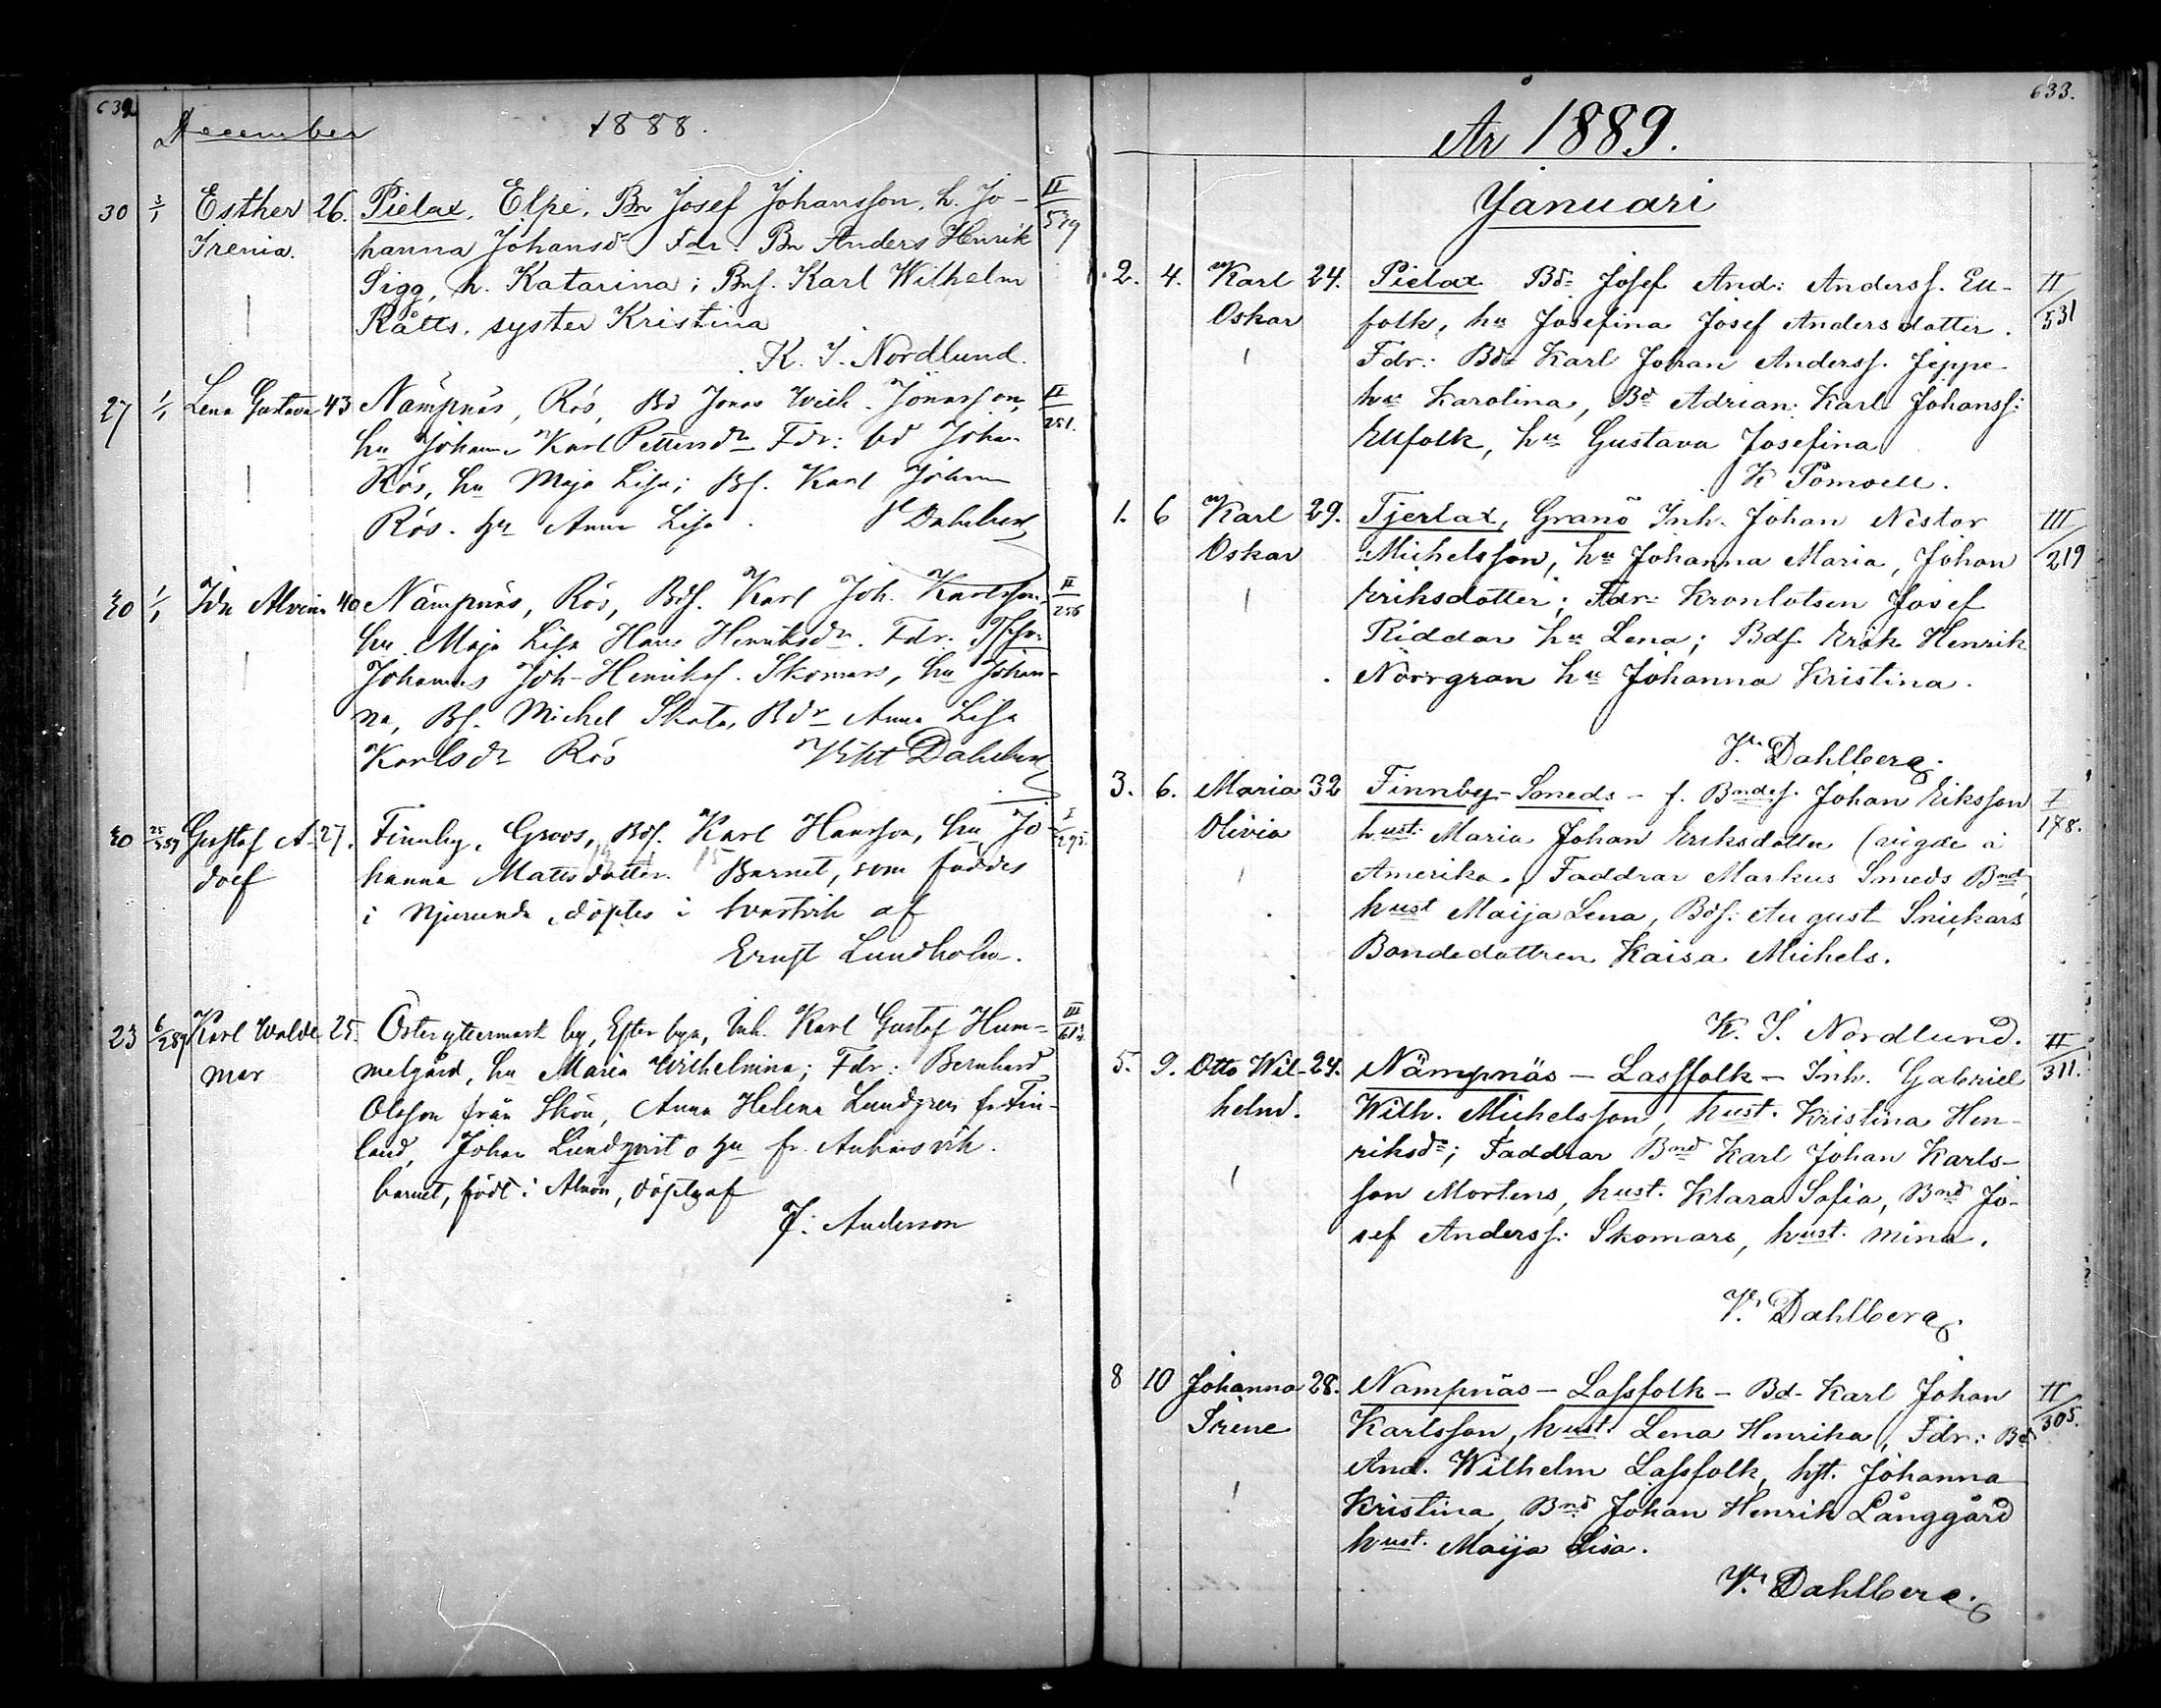 632
December 1888.
30 3/1 Esther 26. Pielax, Elpe, Bn Josef Johansson, h. Jo- II/539
Irenia. hanna Johansdr Fdr: Bn Anders Henrik
Sigg, h. Katarina; Bns. Karl Wilhelm
Rätts, syster Kristina
K. I. Nordlund.
27 1/1 Lena Gustava 43 Nämpnäs, Rös, Bd Jonas Wilh. Jonasson, II/251.
hu Johanna Karl Pettersdr Fdr: bd Johan
Rös, hu Maja Lisa; Bs. Karl Johan
Rös. hu Anna Lisa. V Dahlberg
30 1/1 Ida Alvina 40 Nämpnäs, Rös, Bds. Karl Joh. Karlsson II/256
hu Maja Lisa Hans Henriksdr. Fdr:
Johannes Joh-Henriks. Skomars, hu Johan-
na, Bs. Michel Skata, Bdr Anna Lisa
Karlsdr Rös Vikt Dahlberg
30 Gustaf A- 27. Finnby, Groos, Bds. Karl Hansson, hu Jo-
dolf hanna Mattsdotter. Barnet, som föddes
i Njurunda, döptes i Svartvik af
Ernst Lundholm.
23 6/2 89 Karl Walde- 25. Österyttermark by, Efter byn, Inh. Karl Gustaf Hum- III
mar melgård, hu Maria Wilhelmina; Fdr: Bernhard
Olsson från Skön, Anna Helena Lundgren fr Fin-
land, Johan Lundqvist o hu fr.
barnet, född i Alnön, döptes af
J. Anderson
633.
År 1889.
Januari
2. 4. Karl 24. Pielax Bd: Josef And: Anderss. Eu- II/531
Oskar folk, hu Josefina Josef Andersdotter.
Fdr: Bd: Karl Johan Anderss. Jeppe
hu Karolina, Bd Adrian: Karl Johanss:
Eufolk, hu Gustava Josefina
K Pomoell.
1. 6 Karl 29. Tjerlax, Granö Inh. Johan Nestor III/219
Oskar Michelsson, hu Johanna Maria, Johan
Eriksdotter; Fdr: Kronlotsen Josef
Riddar hu Lena; Bds. Erik Henrik
Norrgran hu Johanna Kristina.
V. Dahlberg.
3. 6. Maria 32 Finnby-Smeds - f. Bndes. Johan Eriksson I/178.
Olivia hust: Maria Johan Eriksdotter (vigde i
Amerika. Faddrar Markus Smeds Bnd
hust Maija Lena, Bds: August Snickars
Bondedottren Kaisa Michels.
K. I. Nordlund.
5. 9. Otto Wil- 24. Nämpnäs - Lassfolk - Inh. Gabriel II/311.
helm. Wilh. Michelsson, hust. Kristina Hen-
riksdr; Faddrar Bnd Karl Johan Karls-
son Mortens, hust. Klara Sofia, Bnd Jo-
sef Anderss: Skomars, hust. Mina.
V. Dahlberg.
8 10 Johanna 28. Nämpnäs - Lassfolk - Bd- Karl Johan II/305.
Irene Karlsson, hust. Lena Henrika, Fdr: Bd
And. Wilhelm Lassfolk, hst. Johanna
Kristina, Bnd Johan Henrik Långgård
hust. Maija Lisa.
V. Dahlberg.